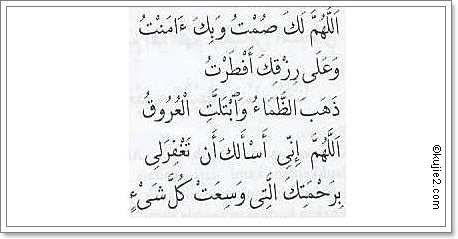 اَللّٰهُمَّ لَكَ صُمْتُ وَبِكَ ءَامَنْتُ
وَعَلَى رِزْقِكَ أَفْطَرْتُ
ذَهَبَ الظَّمَاءُ وَابْتَلَّتِ الْعُرُوقُ
اَللّٰهُمَّ إِنِّى أَسْأَلُكَ أَن تَغْفِرَلِى
بِرَحْمَتِكَ الَّتِى وَسِعَتْ كُلَّ شَىْءٍ
©kujie2.com